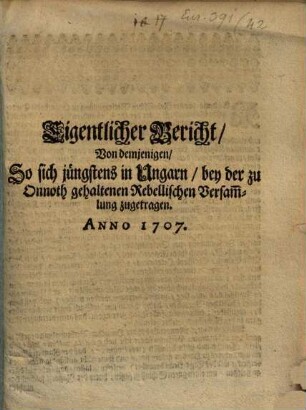 Eur. 391/42
Eigentlicher Bericht/
Von demjenigen/
So sich jüngstens in Ungarn/ bey der zu
Onnoth gehaltenen Rebellischen Versam̃-
lung zugetragen.
ANNO 1707.